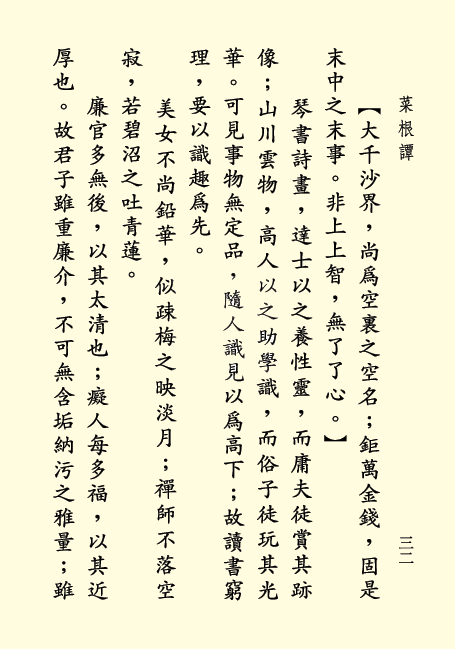 菜根譚
三二
【大千沙界，尚爲空裏之空名；鉅萬金錢，固是
末中之末事。非上上智，無了了心。】
琴書詩畫，達士以之養性靈，而庸夫徒賞其跡
像；山川雲物，高人以之助學識，而俗子徒玩其光
華。可見事物無定品，隨人識見以爲高下；故讀書窮
理，要以識趣爲先。
美女不尚鉛華，似疎梅之映淡月；禪師不落空
寂，若碧沼之吐青蓮。
廉官多無後，以其太清也；癡人每多福，以其近
厚也。故君子雖重廉介，不可無含垢納污之雅量；雖